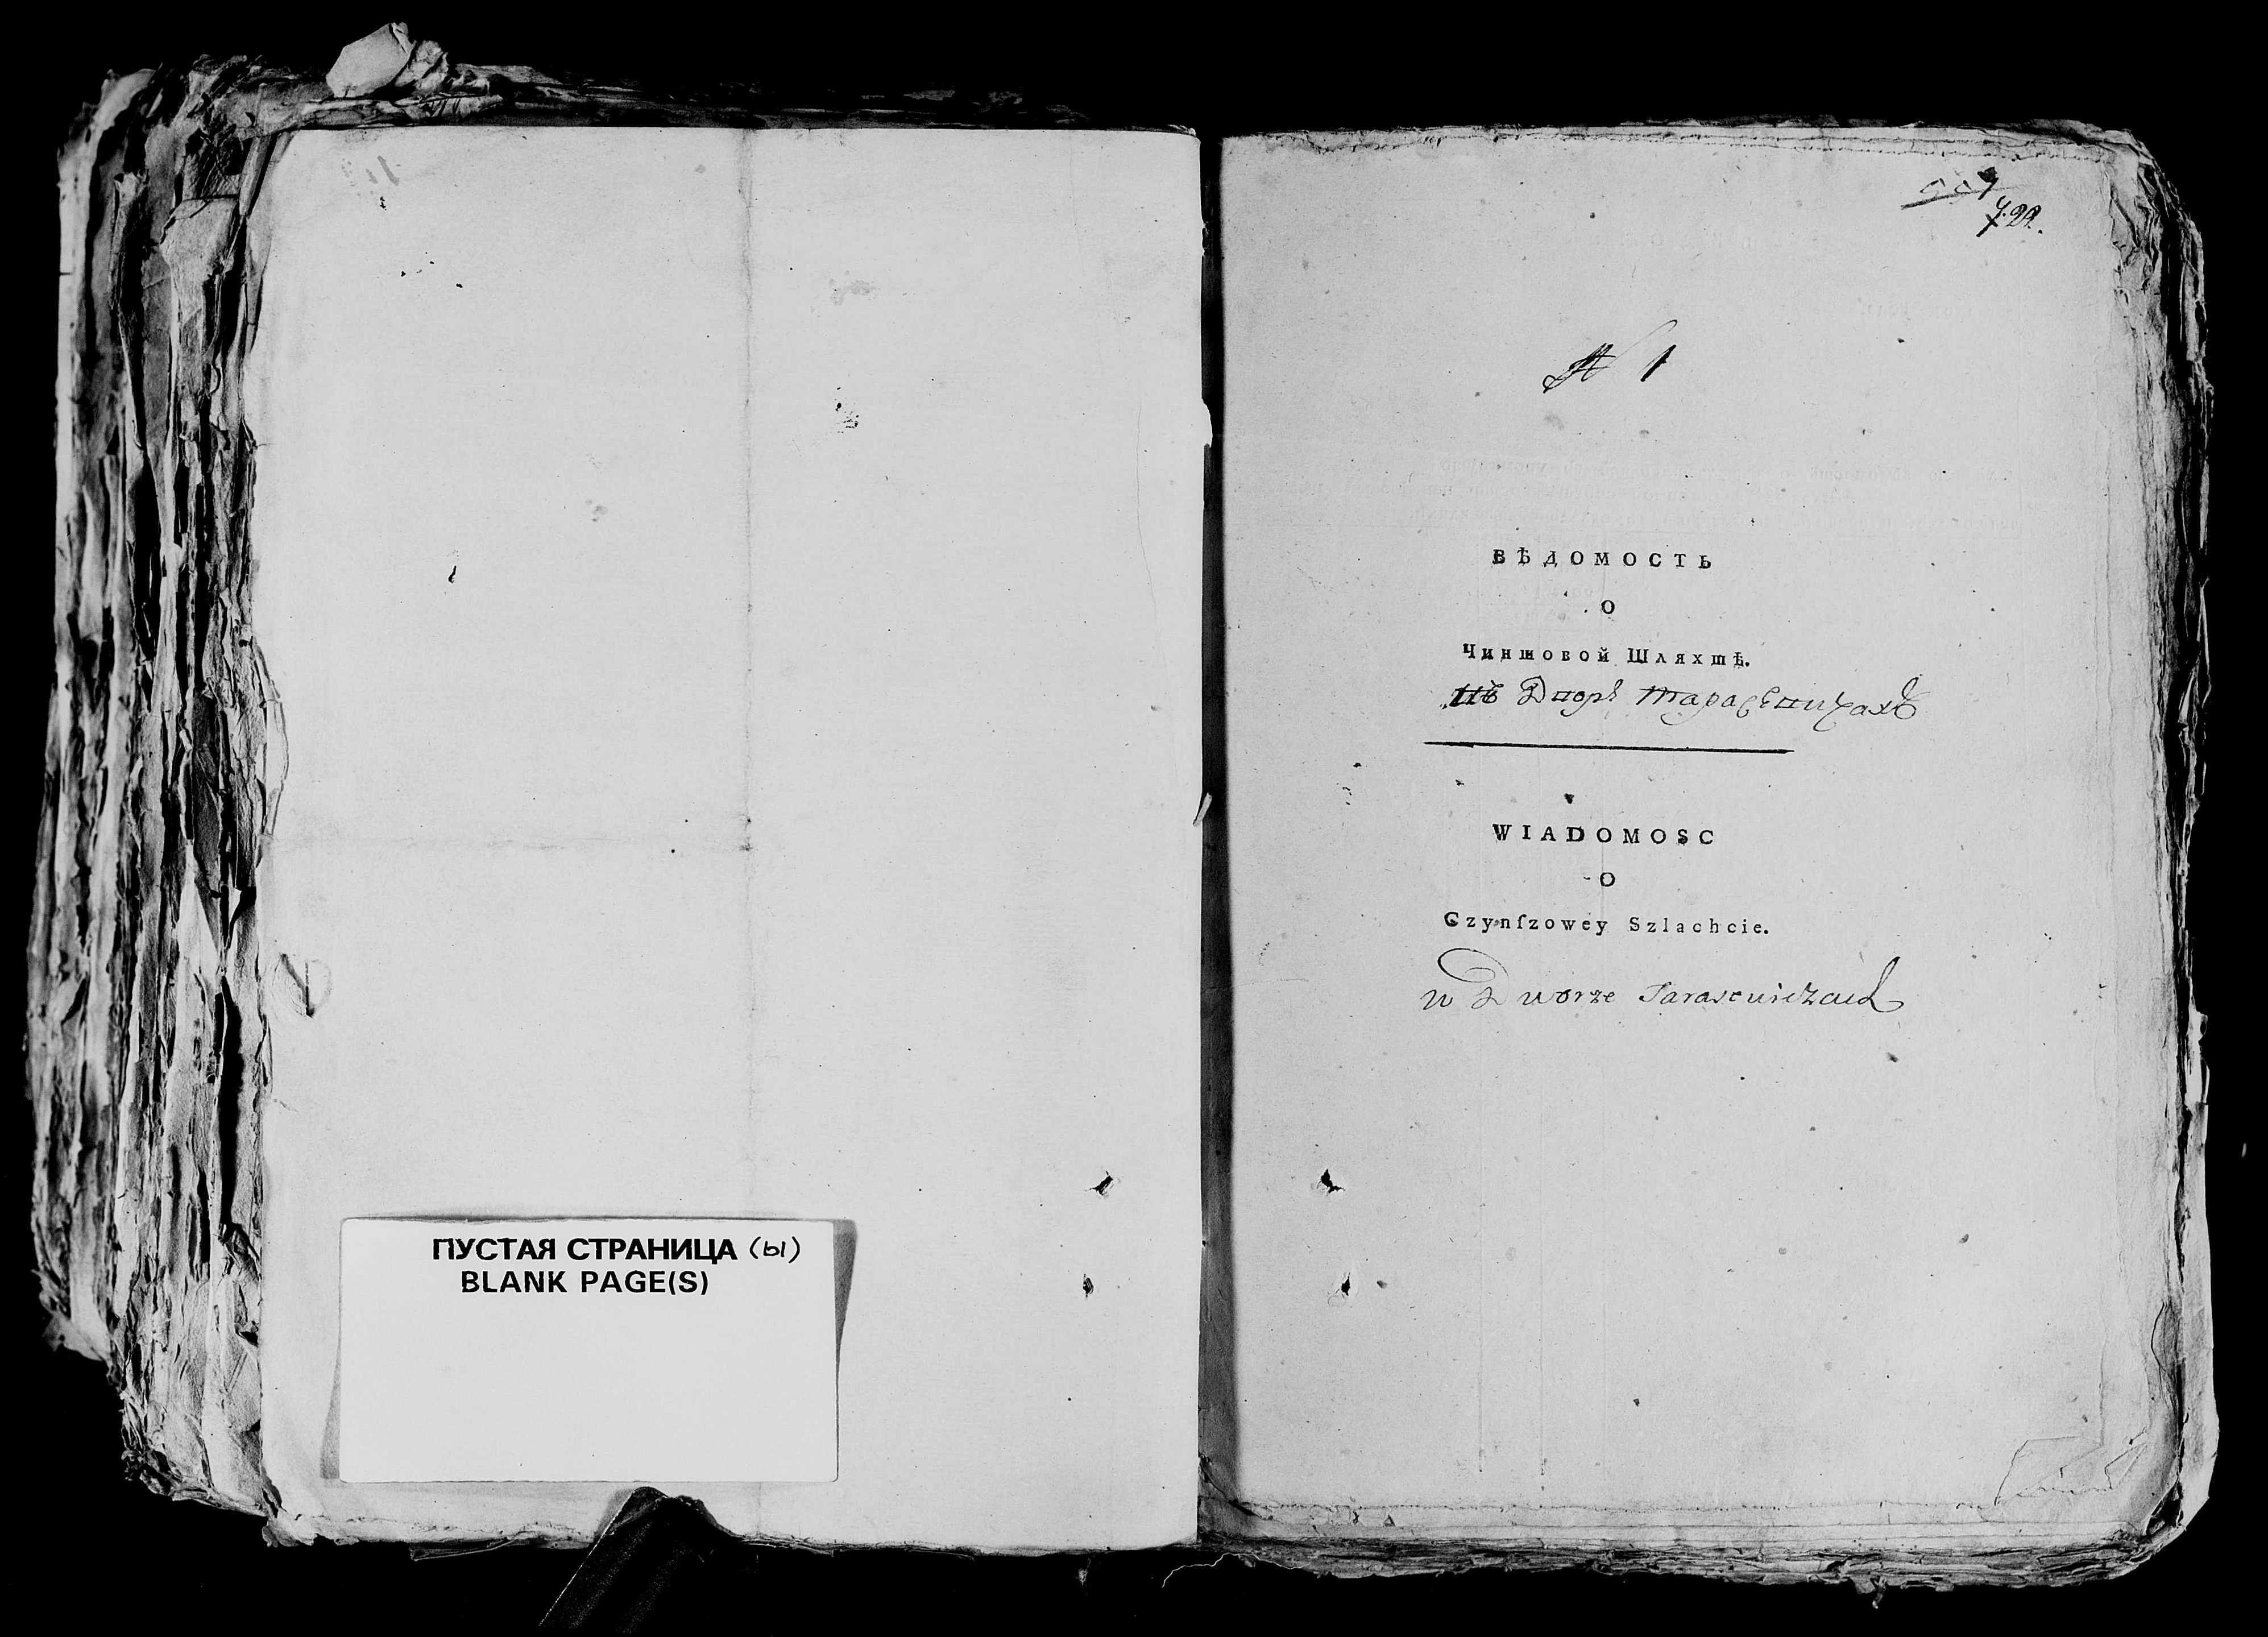 ПУСТАЯ СТРАНИЦА (ы)
BLANK PAGE(S)
722.
N 1
ВѢДОМОСТЬ
О
Чиншовой Шляхтѣ.
въ Дворѣ Тарасевичахъ
WIADOMOSC
O
Czynſzowey Szlachcie.
w Dworze Tarasewiczach